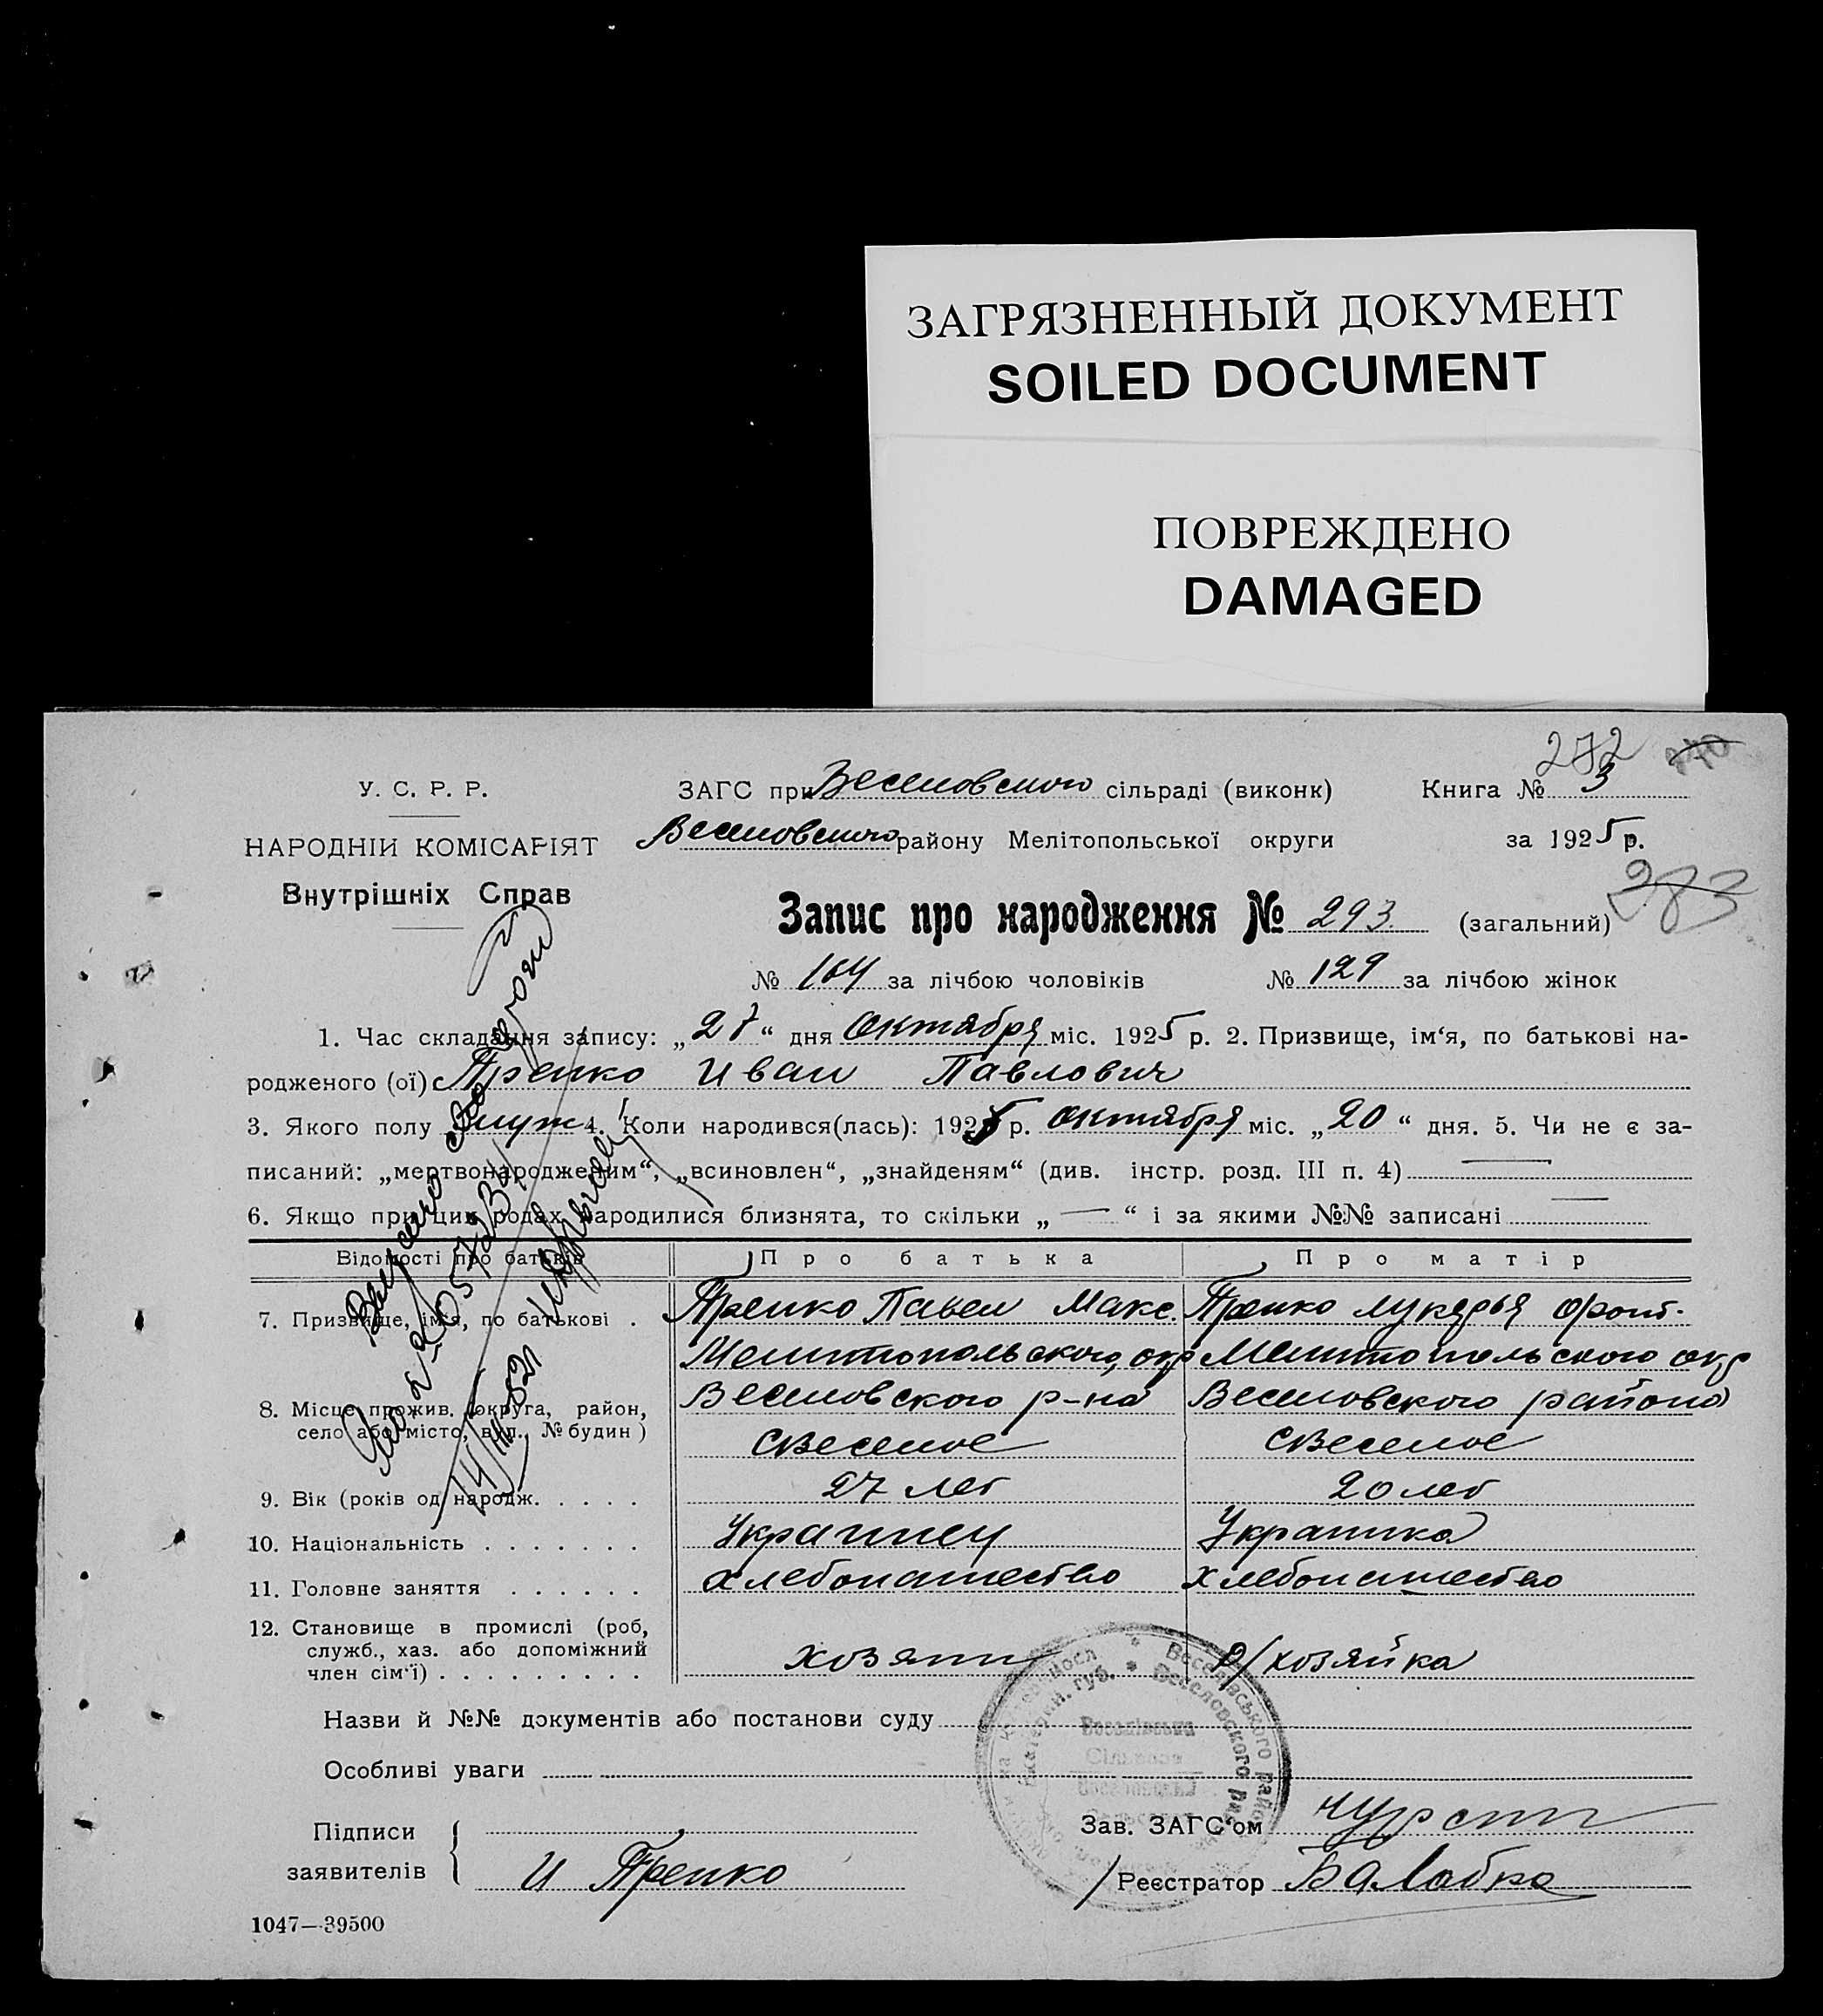 ЗАГРЯЗНЕННЫЙ ДОКУМЕНТ
SOILED DOCUMENT
ПОВРЕЖДЕНО
DAMAGED
272
У. С. Р. Р.
НАРОДНІЙ КОМІСАРІЯТ
Внутрішніх Справ
ЗАГС при Веселовского сільраді (виконк) Книга № 3
Веселовского району Мелітопольської округи за 1925 р.
283
Запис про народження № 293. (загальний)
№ 164 за лічбою чоловіків № 129 за лічбою жінок
1. Час складання запису: „27“ дня октября міс. 1925 р. 2. Призвище, ім‘я, по батькові на-
родженого (ої) Иван Павлович
3. Якого полу муж 4. Коли народився(лась): 1925 р. октября міс. „20“ дня. 5. Чи не є за-
писаний: „мертвонародженим“, „всиновлен“, „знайденям“ (див. інстр. розд. III п. 4) —
6. Якщо при цих родах народилися близнята, то скільки „—“ і за якими №№ записані —
Відомості про батьків Про батька Про матір
7. Призвище, ім‘я, по батькові . Павел Макс. Лукерья
Мелитопольского окр Мелитопольского окр
8. Місце прожив. (округа, район, село або місто, вул., № будин) Веселовского р-на Веселовского района
с Веселое с Веселое
9. Вік (років од народж. . . . . 27 лет 20 лет
10. Національність . . . . . . . Украинец Украинка
11. Головне заняття . . . . . . хлебопашество хлебопашество
12. Становище в промислі (роб, служб., хаз. або допоміжний член сім‘ї) . . . . . . . . . хозяин д/хозяйка
Назви й №№ документів або постанови суду
Особливі уваги
Підписи заявителів
И
Зав. ЗАГС‘ом
Реєстратор
1047—39500